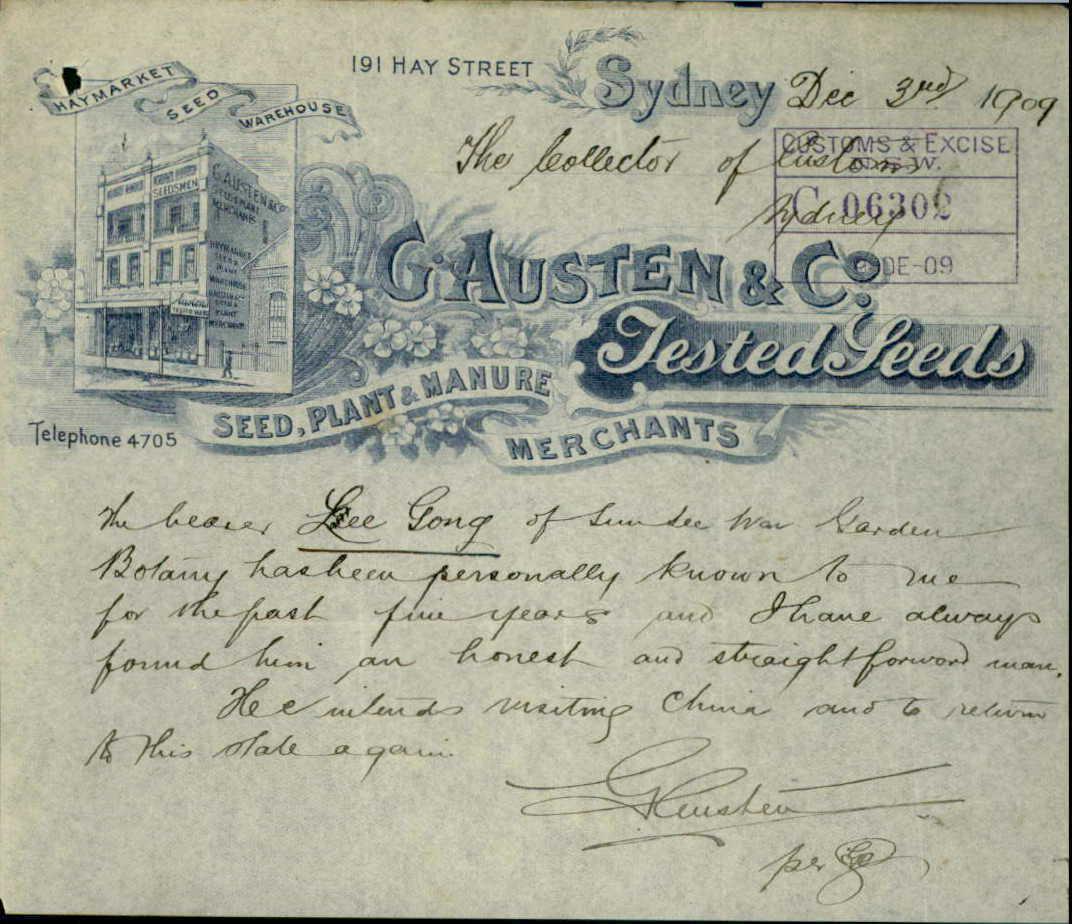 HAYMARKET SEED WAREHOUSE
SEEDSMEN
G. AUSTEN & Co
SEED & PLANT
MERCHANTS
HAYMARKET
SEED &
PLANT
WAREHOUSE
PLANT
MERCHANTS
191 HAY STREET Sydney Dec 3rd 1909
The Collector of Customs
Sydney
CUSTOMS & EXCISE
N.S.W.
C 06302
DE-09
G. AUSTEN & Co.
Tested Seeds
SEED, PLANT & MANURE
MERCHANTS
Telephone 4705
The bearer Lee Gong of Sun Lee War Garden
Botany has been personally known to me
for the past five years and I have always
found him an honest and straightforward man.
He intends visiting China and to return
to this state again
G Austen
per